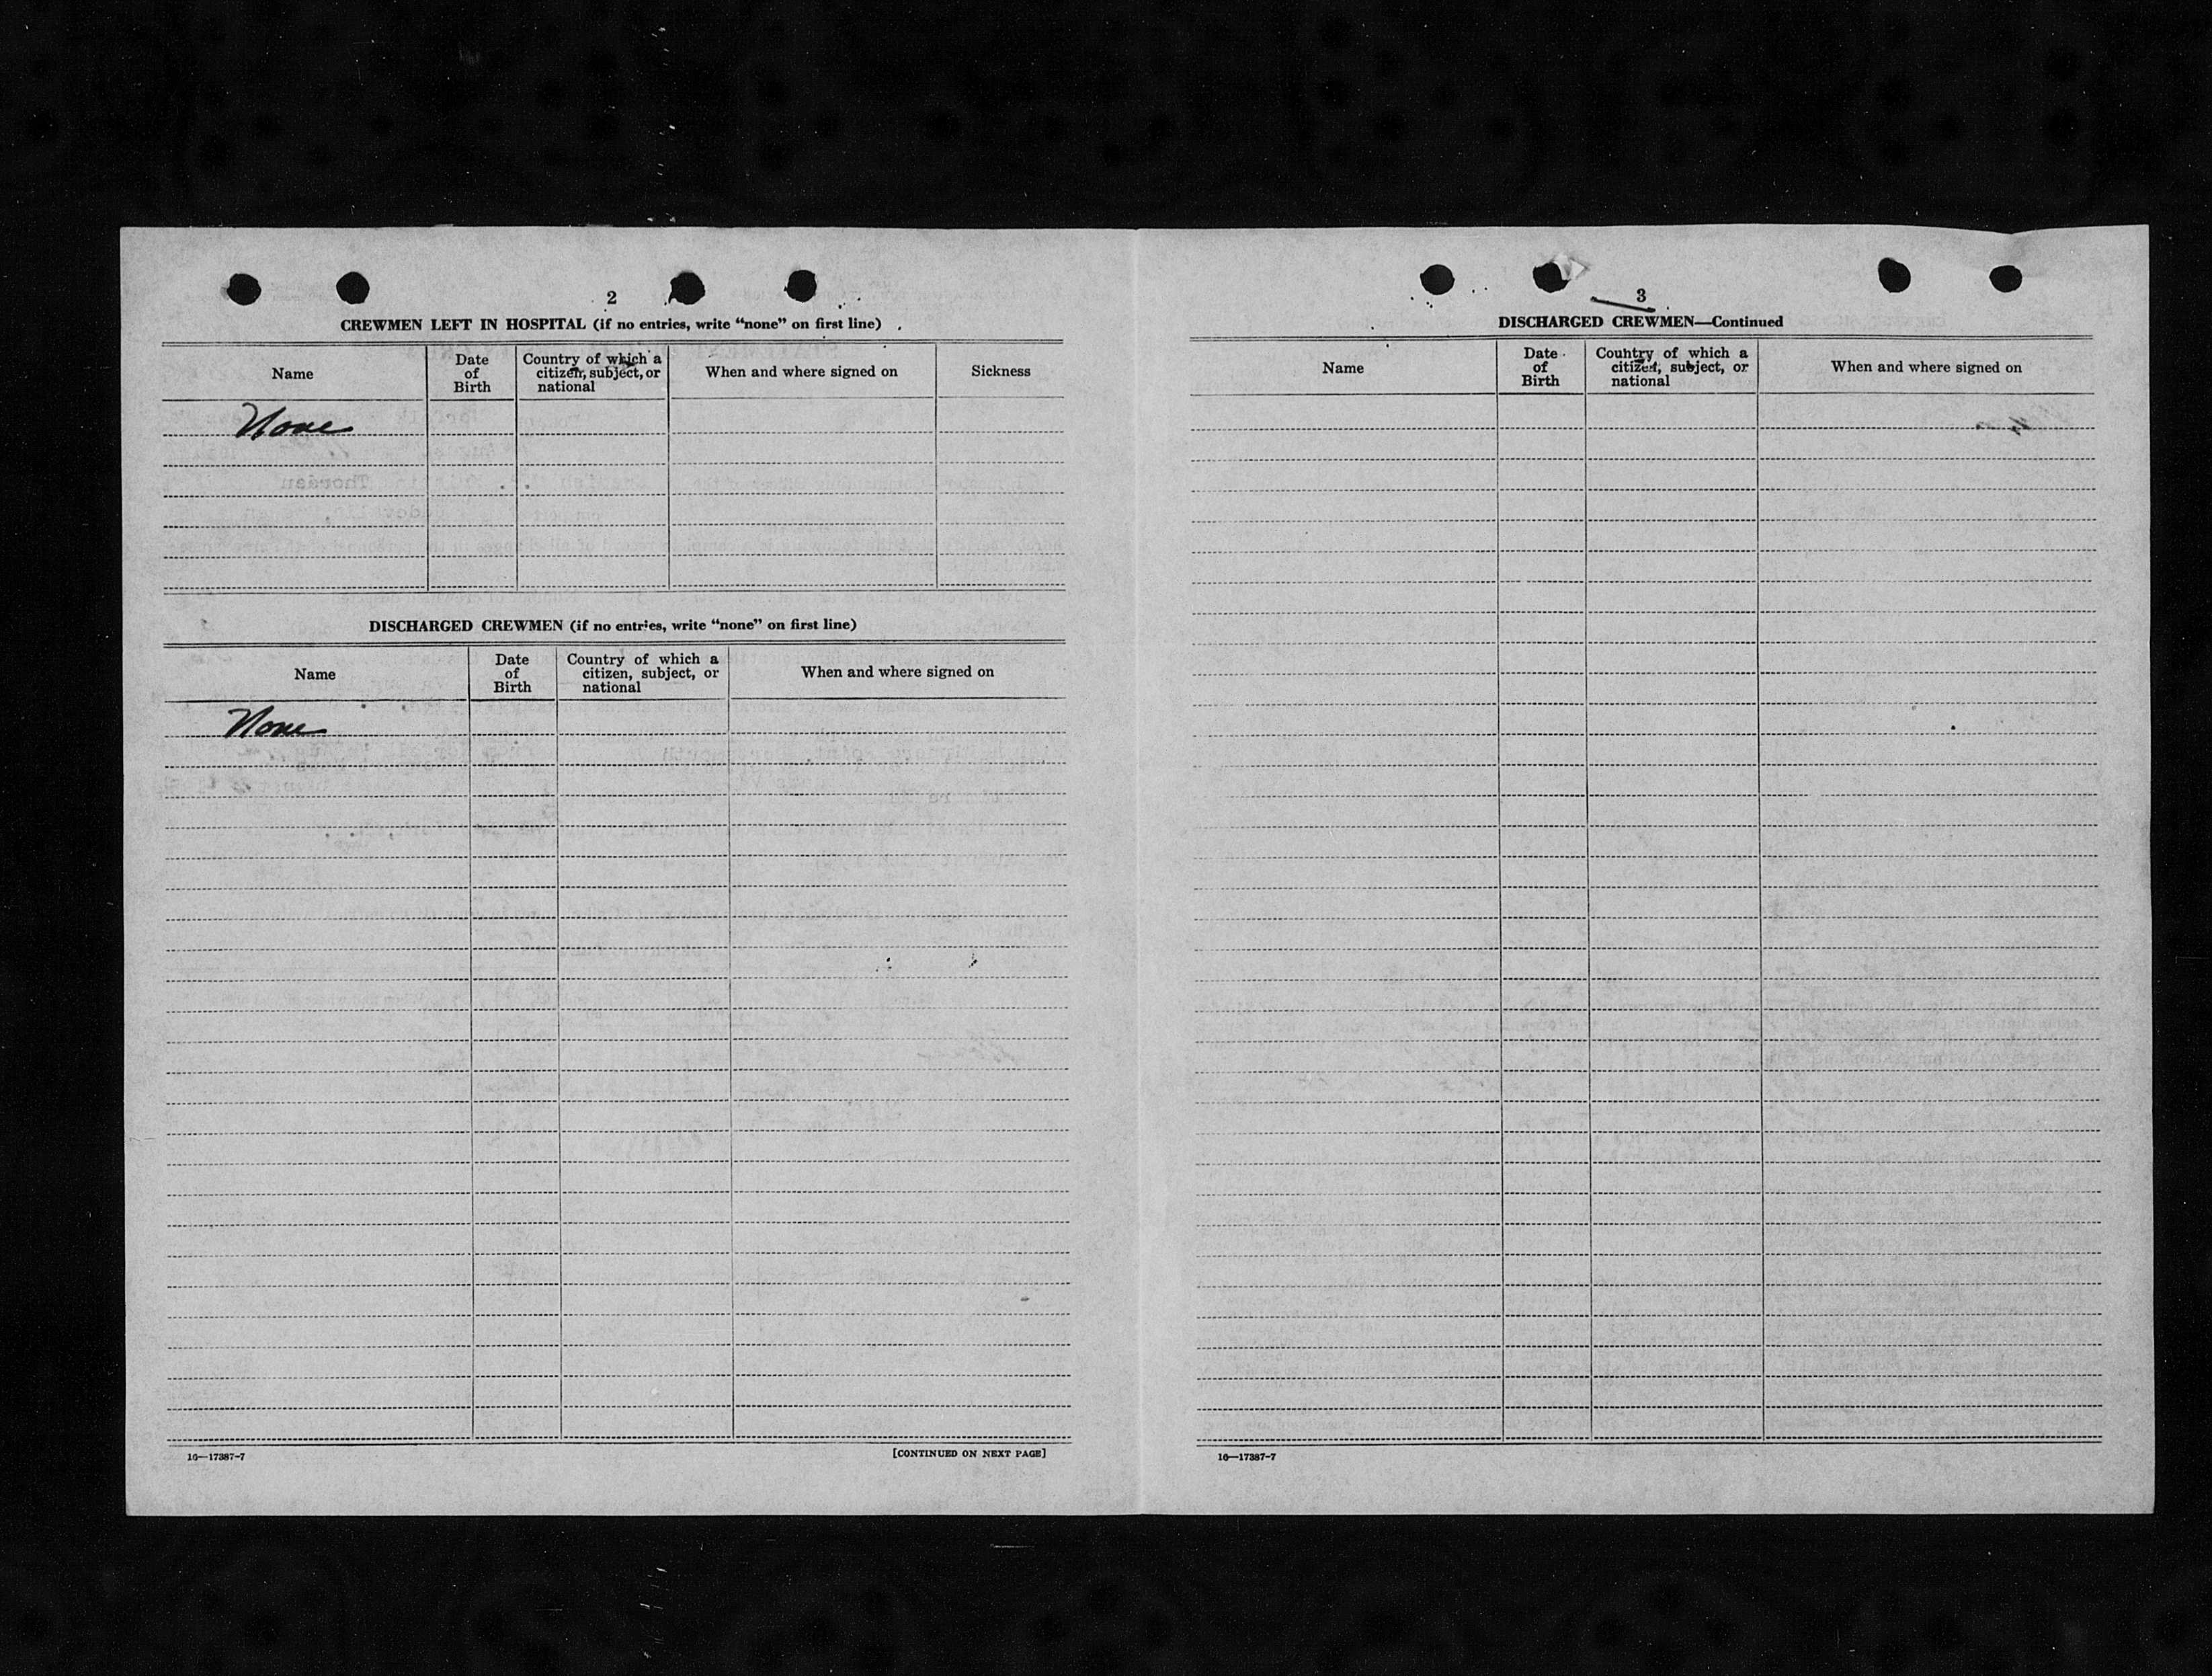 2
CREWMEN LEFT IN HOSPITAL (if no entries, write “none” on first line)
Name
Date of Birth
Country of which a citizen, subject, or national
When and where signed on
Sickness
None
DISCHARGED CREWMEN (if no entries, write “none” on first line)
Name
Date of Birth
Country of which a citizen, subject, or national
When and where signed on
None
16—17387-7
[CONTINUED ON NEXT PAGE]
3
DISCHARGED CREWMEN—Continued
Name
Date of Birth
Country of which a citizen, subject, or national
When and where signed on
16—17387-7